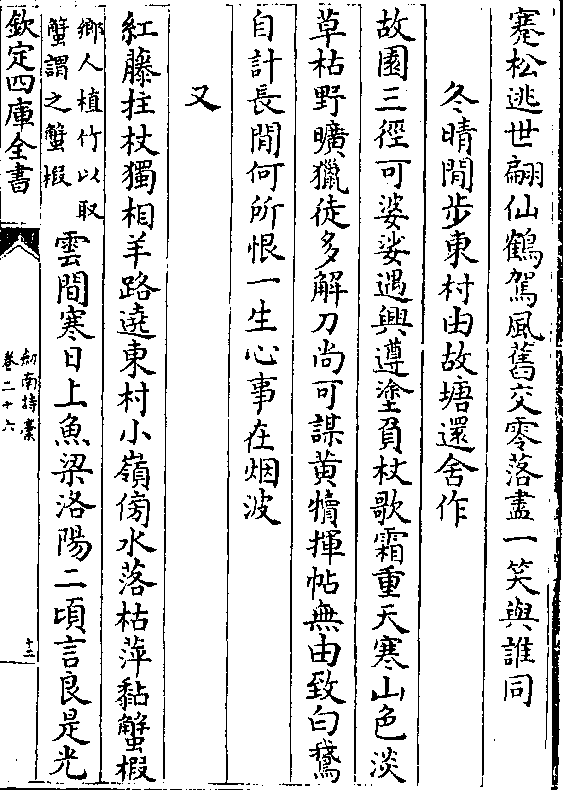 蹇松逃世翩仙鶴駕風舊交零落盡一笑與誰同
冬晴閒步東村由故塘還舍作
故園三徑可婆娑遇興遵塗負杖歌霜重天寒山色淡
草枯野曠獵徒多解刀尚可謀黄犢揮帖無由致白鵞
自計長閒何所恨一生心事在烟波
又
紅藤拄杖獨相羊路遶東村小嶺傍水落枯萍黏蟹椴
鄉人植竹以取
蟹謂之蟹椴
雲間寒日上魚梁洛陽二頃言良是光
欽定四庫全書
劍南詩稾
卷二十六
十三